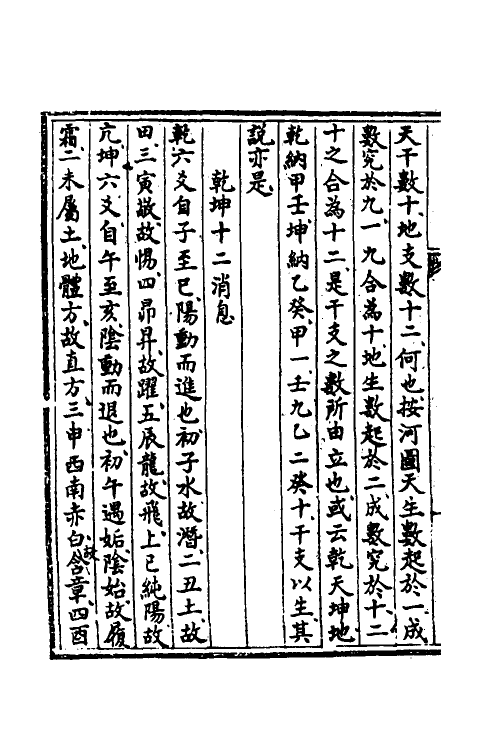 天干數十地支數十二何也按河圖天生數起於一成
數究於九一九合為十地生數起於二成數究於十二
十之合為十二是干支之數所由立也或云乾天坤地
乾納甲壬坤納乙癸甲一壬九乙二癸十干支以生其
說亦是
乾坤十二消息
乾六爻自子至巳陽動而進也初子水故潛二丑土故
田三寅敬故惕四昴昇故躍五辰龍故飛上巳純陽故
亢坤六爻自午至亥陰動而退也初午遇姤陰始故履
霜二未屬土地體方故直方三申西南赤白故含章四酉